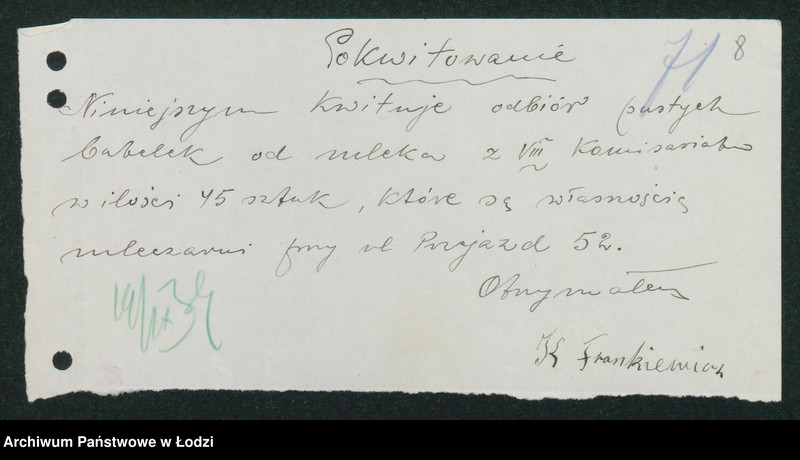 Pokwitowanie
71 8
Niniejszym kwituję odbiór pustych
butelek od mleka z VIII Komisariatu
w ilości 45 sztuk, które są własnością
mleczarni przy ul Przejazd 52.
Otrzymałem
19/IX 39
K Frankiewicz
Archiwum Państwowe w Łodzi